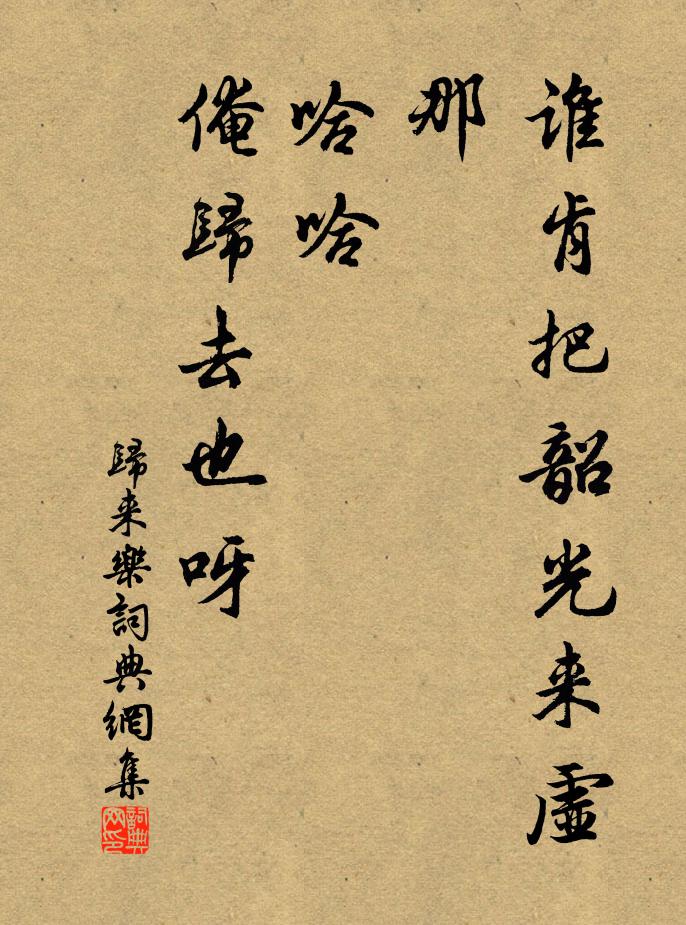 誰肯把韶光来虛
那
哈哈
俺歸去也呀
歸来樂詞典網集
詞典网印